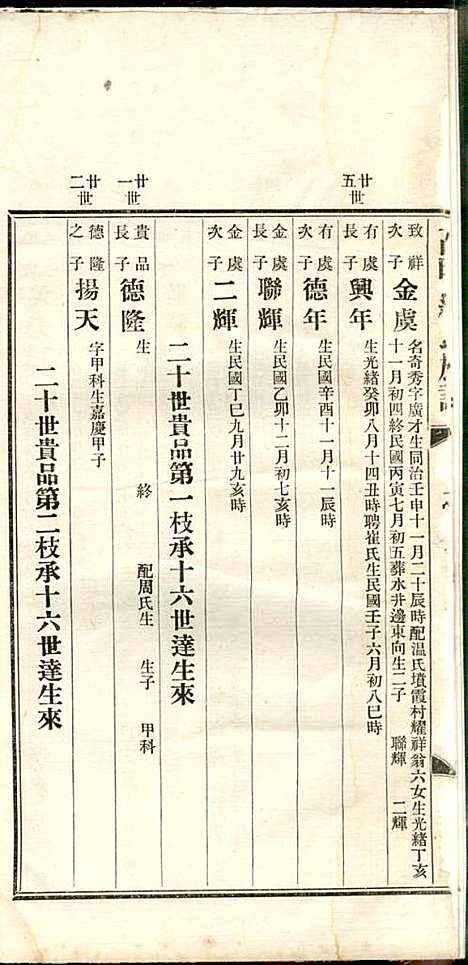 致祥次子 金虞 名奇秀字廣才生同治壬申十一月二十辰時配温氏墳霞村耀祥翁六女生光緒丁亥
十一月初四終民國丙寅七月初五葬水井邊東向生二子 聯輝 二輝
廿五世
有虞長子 興年 生光緒癸卯八月十四丑時聘崔氏生民國壬子六月初八巳時
有虞次子 德年 生民國辛酉十一月十一辰時
金虞長子 聯輝 生民國乙卯十二月初七亥時
金虞次子 二輝 生民國丁巳九月廿九亥時
二十世貴品第一枝承十六世達生來
廿一世
貴品長子 德隆 生 終 配周氏生 生子 甲科
廿二世
德隆之子 揚天 字甲科生嘉慶甲子
二十世貴品第二枝承十六世達生來